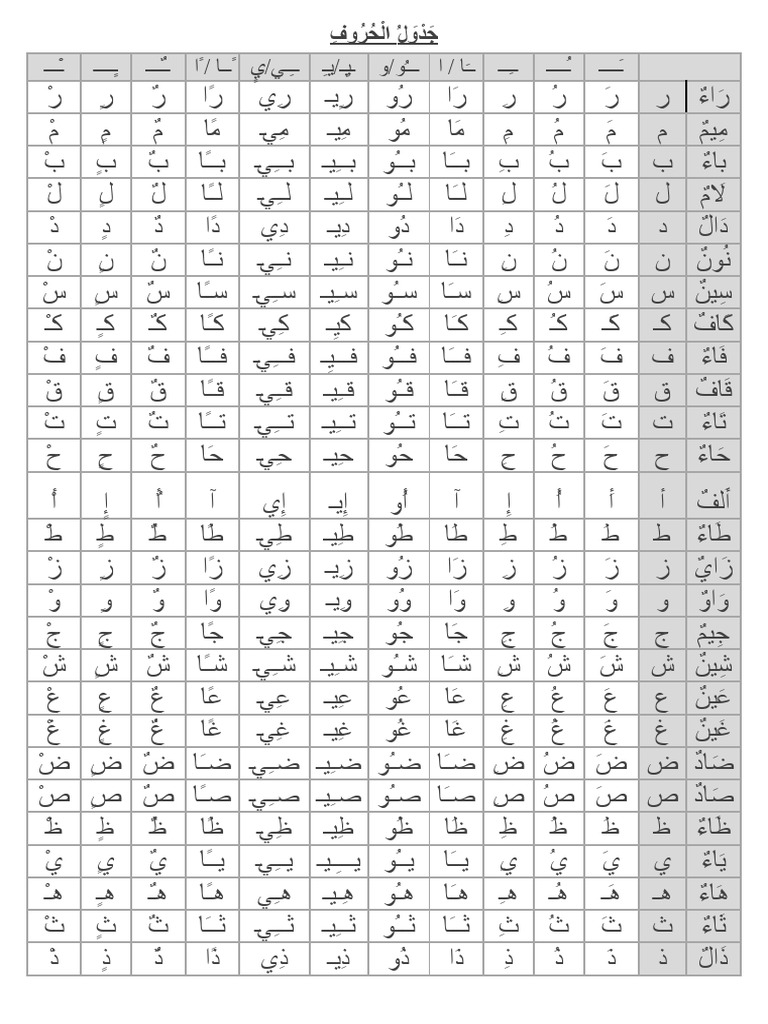 جَدْوَلُ الْحُرُوفِ
ـَـ ـُـ ـِـ ـَا / ا ـُـو/و ـِيـ/يـ ـِـي/ي ـًـا / اً ـٌـ ـٍـ ـْـ
رَاءٌ ر رَ رُ رِ رَا رُو رِيـ رِي رًا رٌ رٍ رْ
مِيمٌ م مَ مُ مِ مَا مُو مِيـ مِي مًا مٌ مٍ مْ
باءٌ ب بَ بُ بِ بَـا بُـو بِـيـ بِـي بًـا بٌ بٍ بْ
لَامٌ ل لَ لُ لِ لَـا لُـو لِـيـ لِـي لًـا لٌ لٍ لْ
دَالٌ د دَ دُ دِ دَا دُو دِيـ دِي دًا دٌ دٍ دْ
نُونٌ ن نَ نُ نِ نَـا نُـو نِـيـ نِـي نًـا نٌ نٍ نْ
سِينٌ س سَ سُ سِ سَـا سُـو سِـيـ سِـي سًـا سٌ سٍ سْ
كافٌ كـ كَـ كُـ كِـ كَـا كُـو كِيـ كِي كًا كٌـ كٍـ كْـ
فَاءٌ ف فَ فُ فِ فَـا فُـو فِـيـ فِـي فًـا فٌ فٍ فْ
قَافٌ ق قَ قُ قِ قَـا قُـو قِـيـ قِـي قًـا قٌ قٍ قْ
تَاءٌ ت تَ تُ تِ تَـا تُـو تِـيـ تِـي تًـا تٌ تٍ تْ
حَاءٌ ح حَ حُ حِ حَا حُو حِيـ حِي حَا حٌ حٍ حْ
أَلفٌ أ أَ أُ إِ آ أُو إِيـ إِي آ أٌ إٍ أْ
طَاءٌ ط طَ طُ طِ طَا طُو طِيـ طِي طًا طٌ طٍ طْ
زَايٌ ز زَ زُ زِ زَا زُو زِيـ زِي زًا زٌ زٍ زْ
وَاوٌ و وَ وُ وِ وَا وُو وِيـ وِي وًا وٌ وٍ وْ
جِيمٌ ج جَ جُ جِ جَا جُو جِيـ جِي جًا جٌ جٍ جْ
شِينٌ ش شَ شُ شِ شَـا شُـو شِـيـ شِـي شًـا شٌ شٍ شْ
عَينٌ ع عَ عُ عِ عَا عُو عِيـ عِي عًا عٌ عٍ عْ
غَينٌ غ غَ غُ غِ غَا غُو غِيـ غِي غًا غٌ غٍ غْ
ضَادٌ ض ضَ ضُ ضِ ضَـا ضُـو ضِـيـ ضِـي ضَـا ضٌ ضٍ ضْ
صَادٌ ص صَ صُ صِ صَـا صُـو صِـيـ صِـي صًـا صٌ صٍ صْ
ظَاءٌ ظ ظَ ظُ ظِ ظَا ظُو ظِيـ ظِي ظًا ظٌ ظٍ ظْ
يَاءٌ ي يَ يُ يِ يَـا يُـو يِـيـ يِـي يًـا يٌ يٍ يْ
هَاءٌ هـ هَـ هُـ هِـ هَـا هُـو هِـيـ هِـي هًـا هٌـ هٍـ هْـ
ثَاءٌ ث ثَ ثُ ثِ ثَـا ثُـو ثِـيـ ثِـي ثَـا ثٌ ثٍ ثْ
ذَالٌ ذ ذَ ذُ ذِ ذَا ذُو ذِيـ ذِي ذًا ذٌ ذٍ ذْ